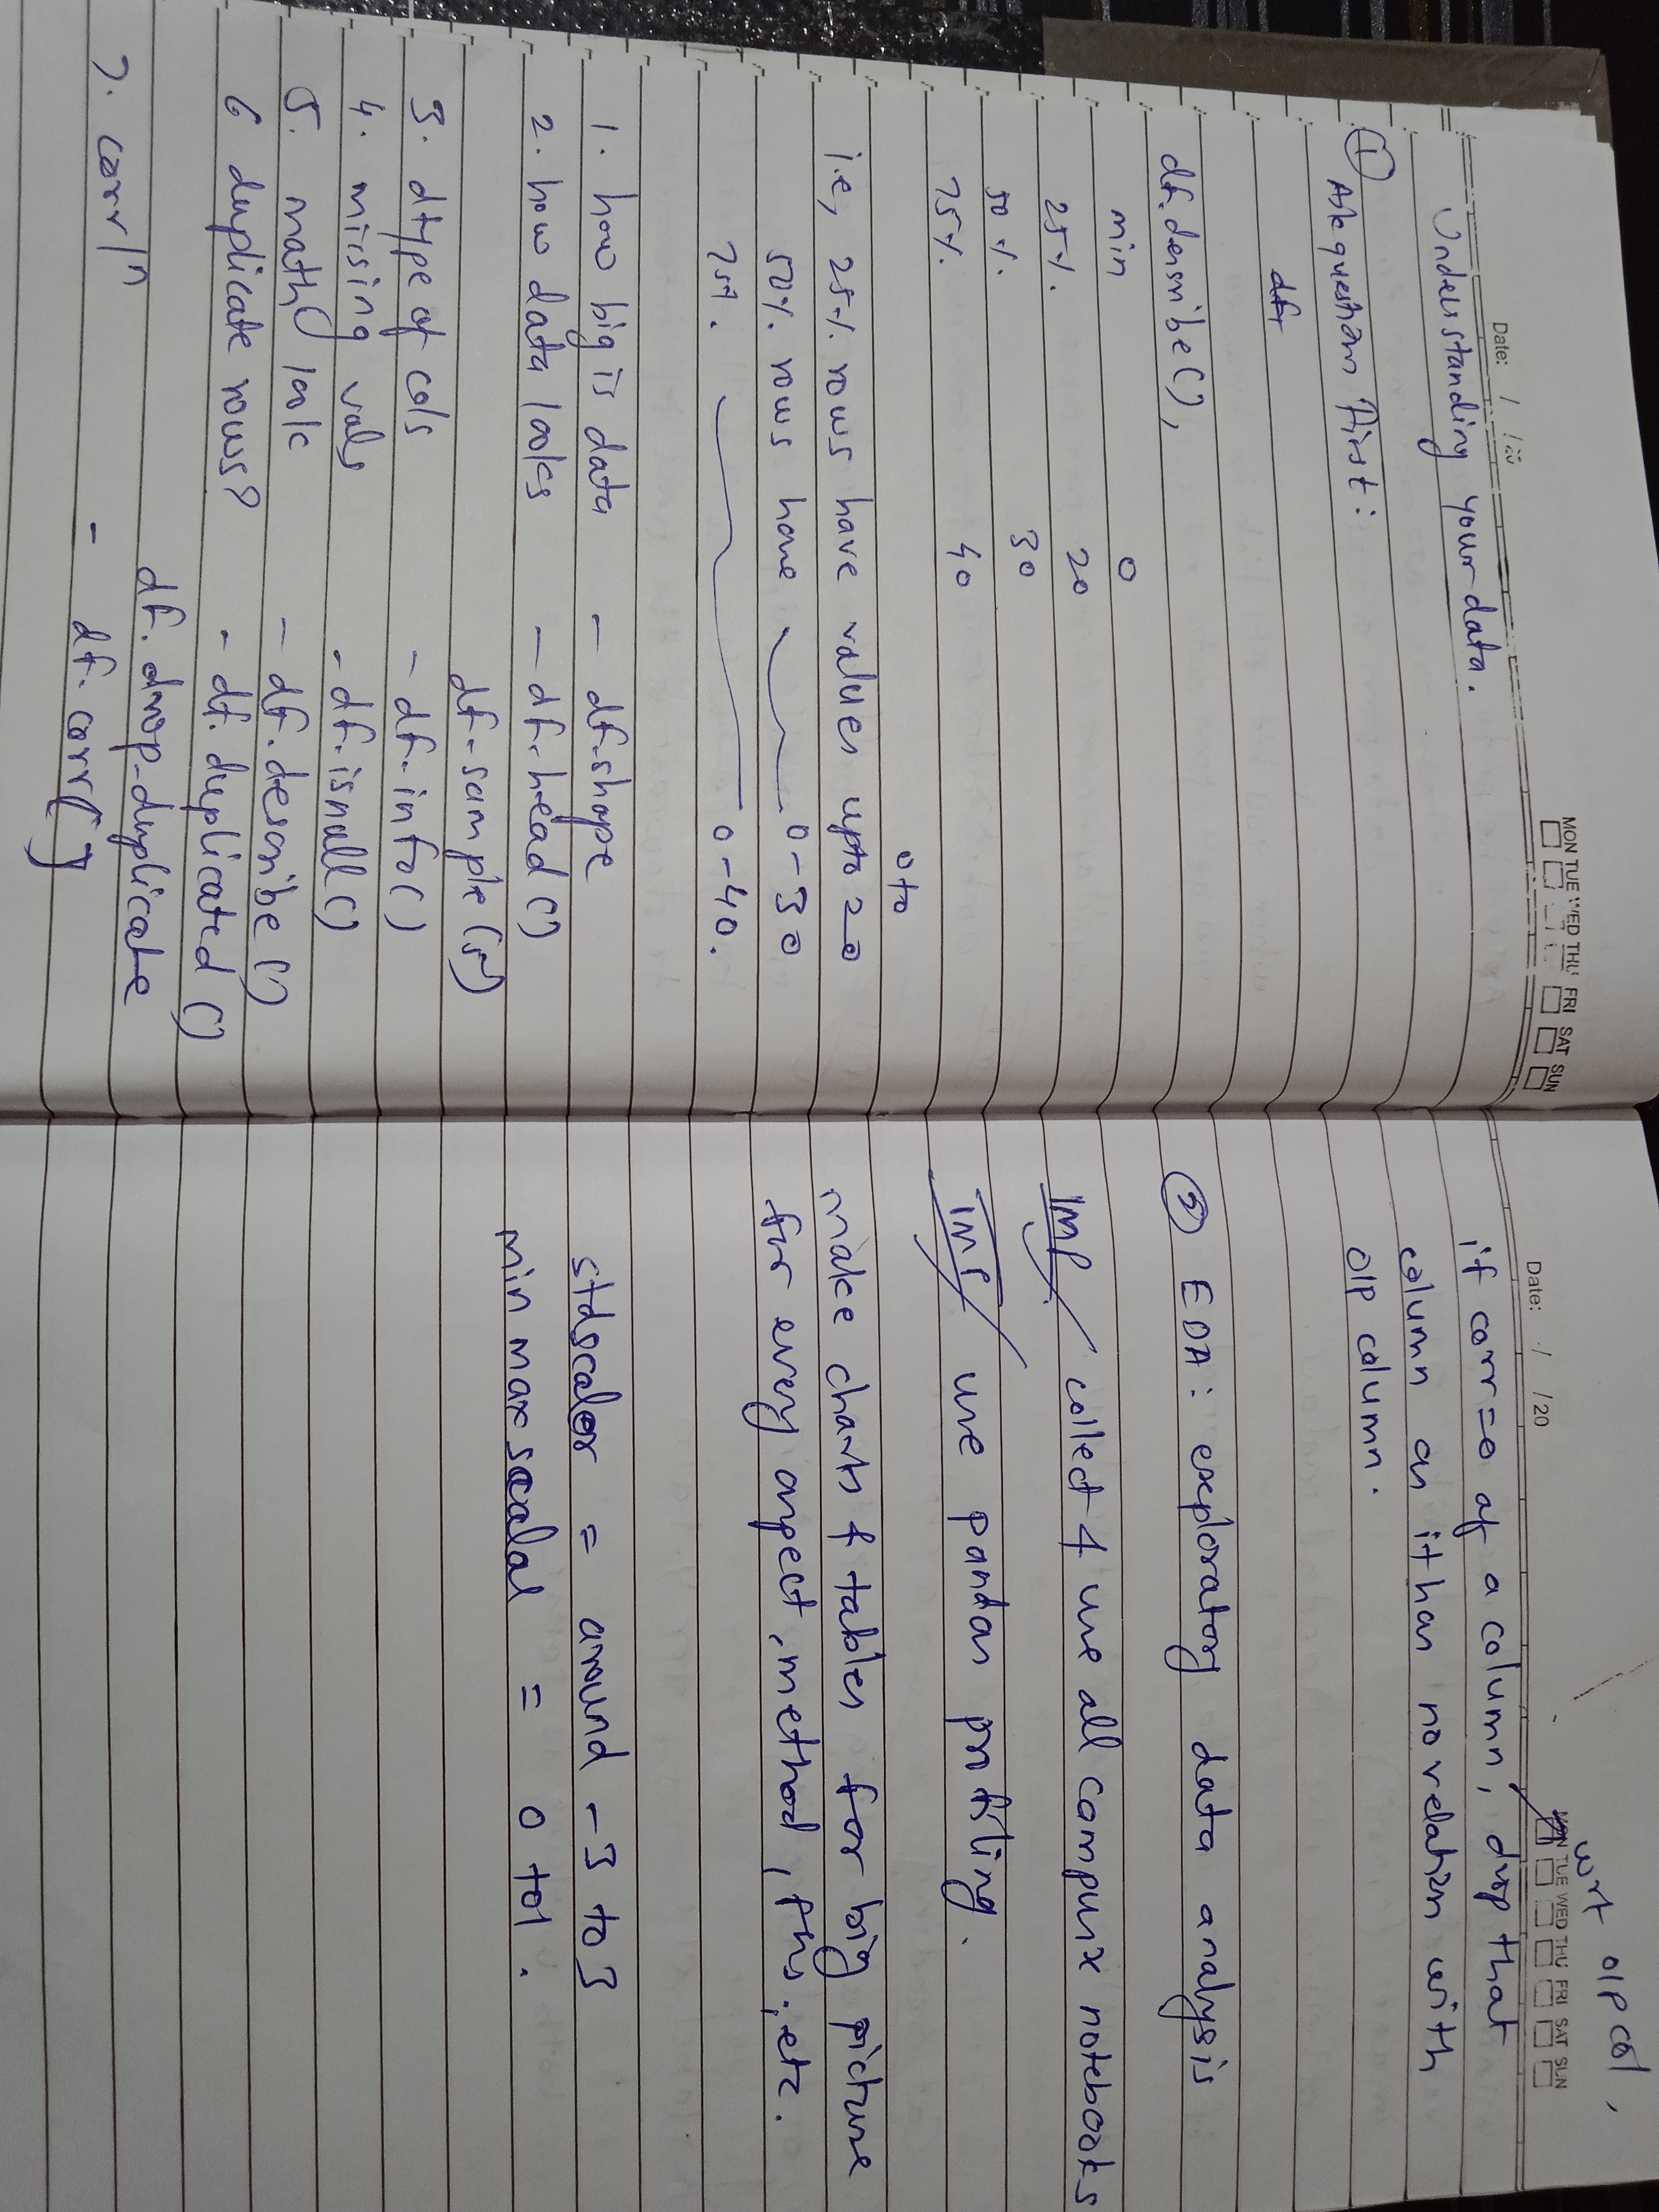 Date: / /20
MON TUE WED THU FRI SAT SUN
Understanding your data.
① Ask question First:
df.describe(),
min 0
25%. 20
50%. 30
75%. 40
0 to
i.e, 25%. rows have values upto 20
50%. rows have 0-30
75%. 0-40.
1. how big is data - df.shape
2. how data looks - df.head()
df.sample(5)
3. dtype of cols - df.info()
4. missing vals - df.isnull()
5. math() look - df.describe()
6 duplicate rows? - df.duplicated()
df.drop_duplicate
7. corr/n - df.corr()
Date: / /20
MON TUE WED THU FRI SAT SUN
wrt o/p col,
if corr=0 of a column, drop that
column as it has no relation with
o/p column.
② EDA: exploratory data analysis
IMP. collect & use all campusx notebooks
IMP use pandas profiling.
make charts & tables for big picture
for every aspect, method, fns., etc.
stdscaler = around -3 to 3
min max scalar = 0 to 1.